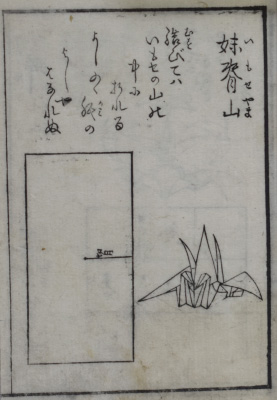 妹脊山
いもせやま
結びてハ
むす
いもせの山の
中に
おれる
よしのゝ紙の
よしや
はなれぬ